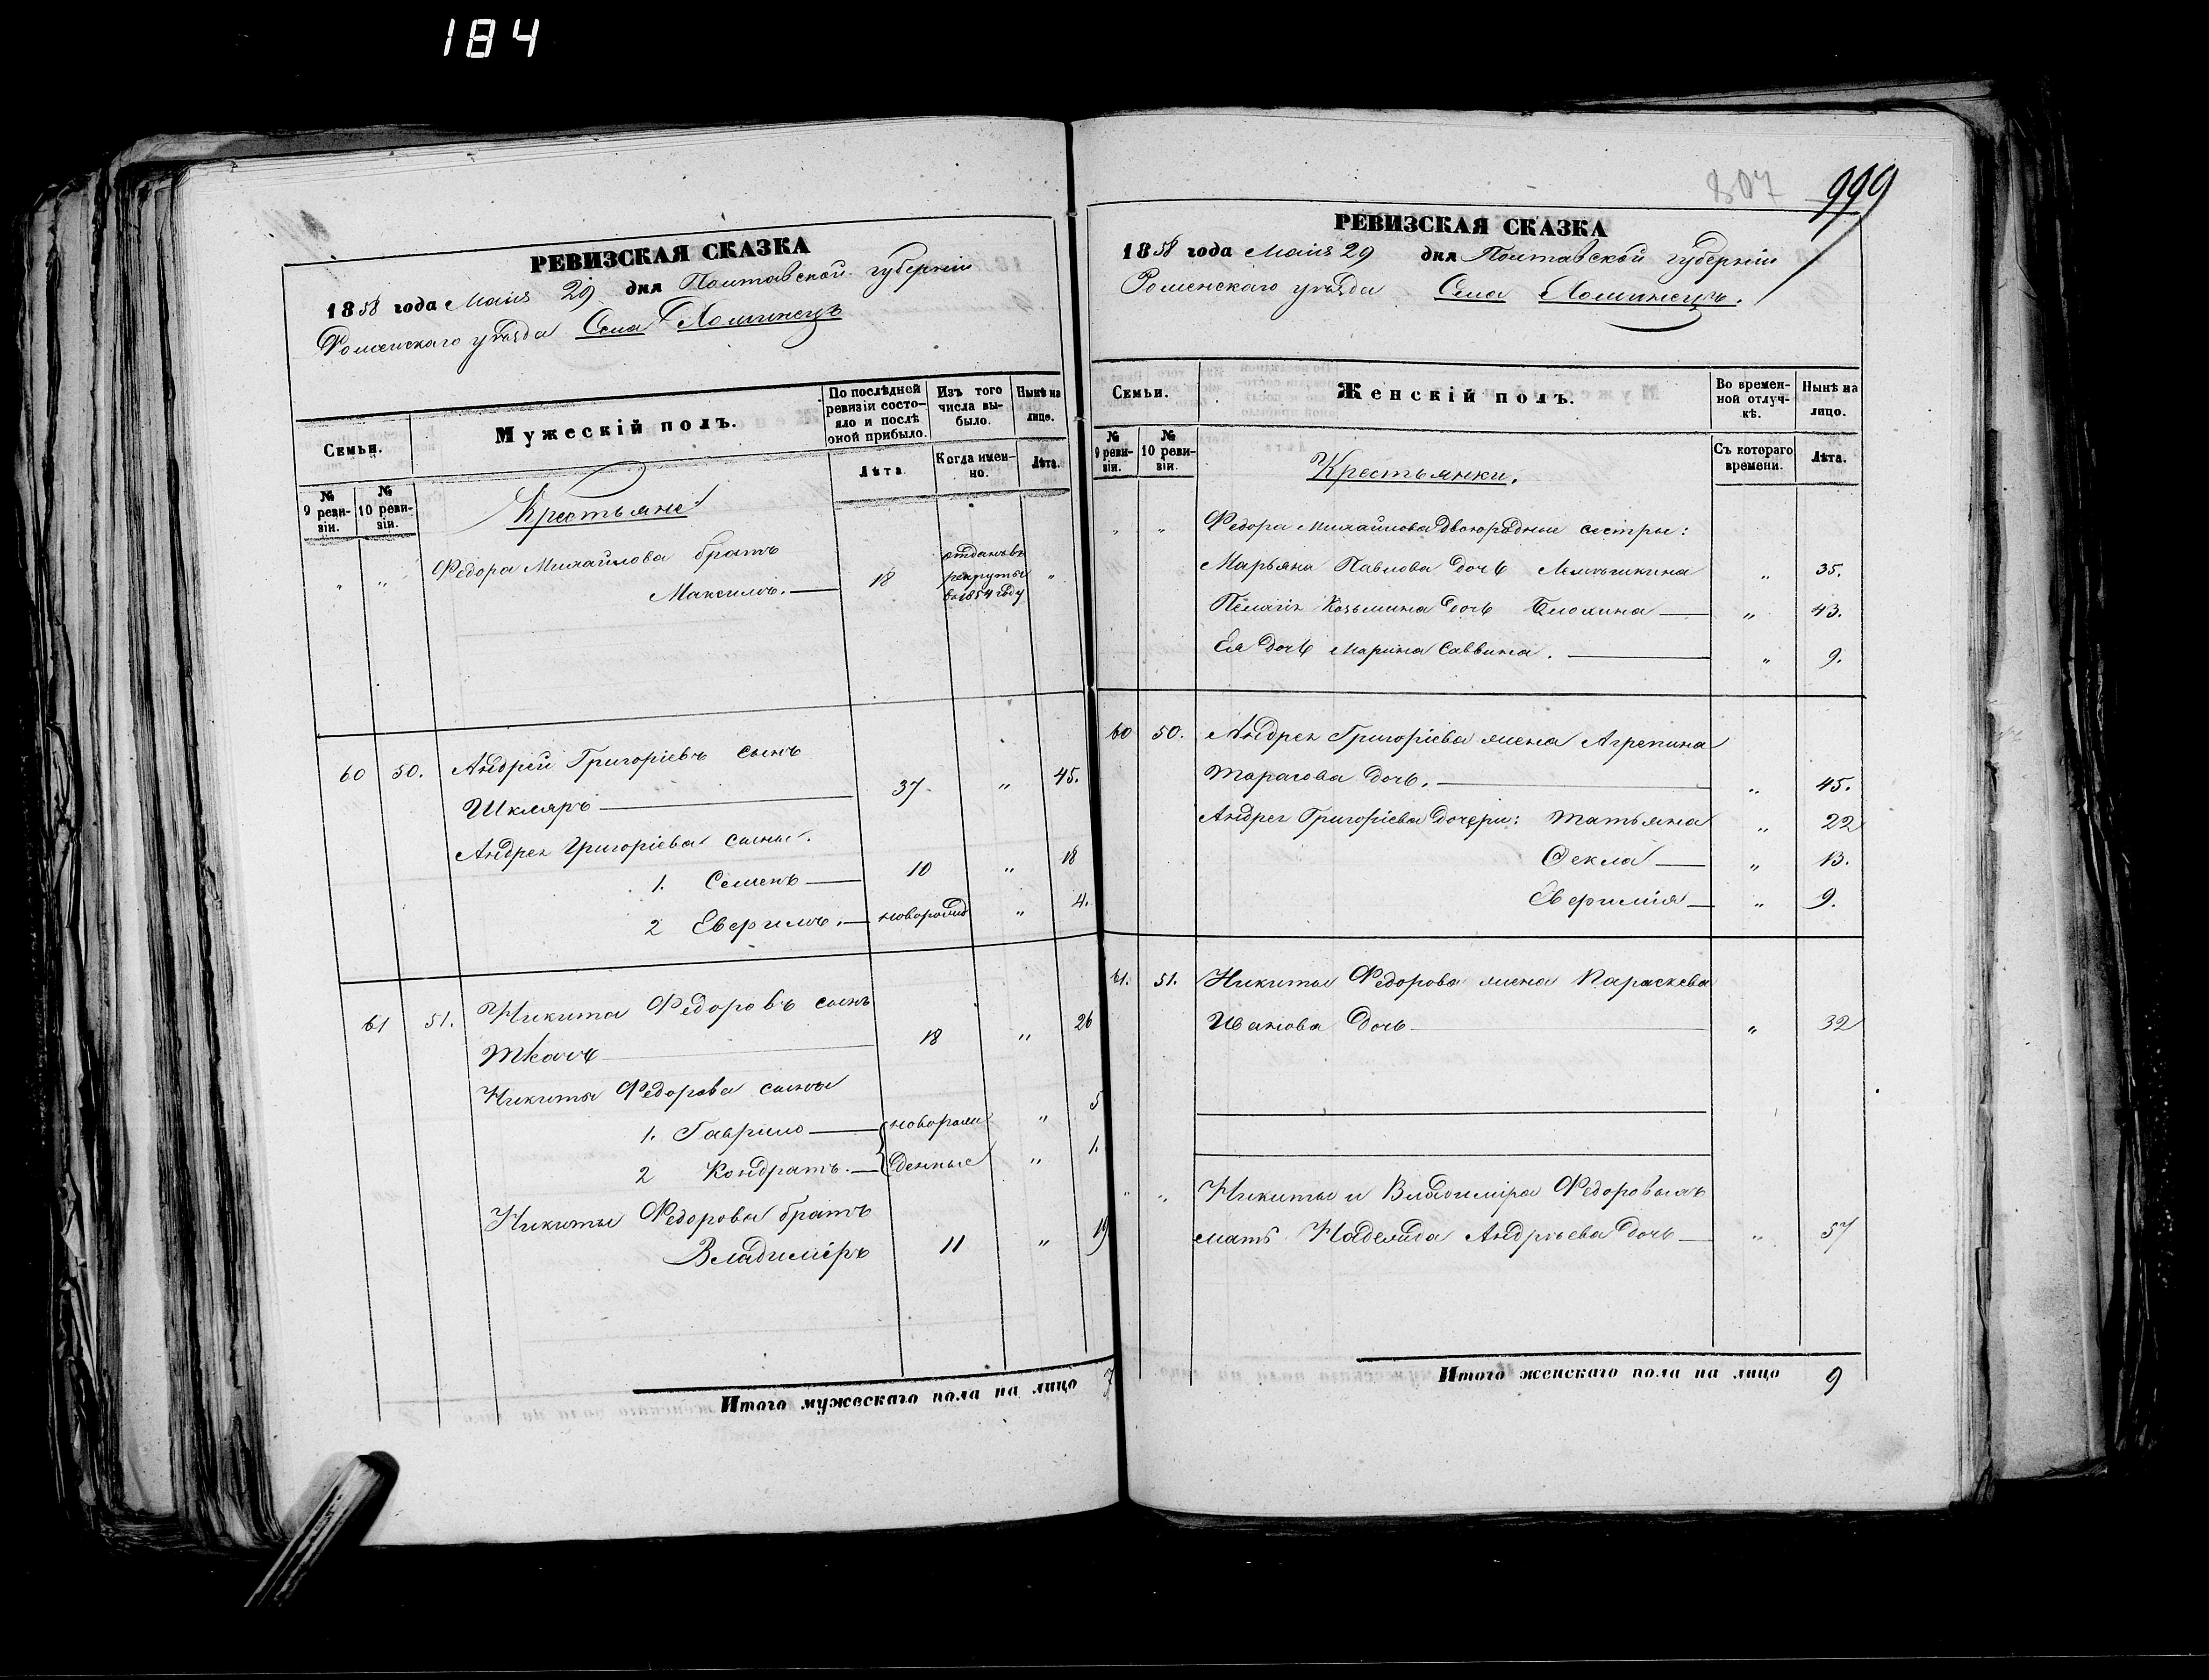 184
РЕВИЗСКАЯ СКАЗКА
1858 года Маія 29 дня Полтавской губерніи
Роменскаго уѣзда Села Хоминецъ
Семьи.
Мужескій полъ.
По послѣдней ревизіи состояло и послѣ оной прибыло.
Изъ того числа выбыло.
Нынѣ на лице.
№ 9 ревизіи.
№ 10 ревизіи.
Лѣта
Когда именно.
Лѣта.
Крестьяне
" " Федора Михайлова братъ
Максимъ. 18 отданъ въ рекруты въ 1854 году "
60 50. Андрей Григоріевъ сынъ
Шкляръ 37. " 45.
Андрея Григоріева сыны.
1. Семенъ 10 " 18
2 Евфимъ. новорожд " 4.
61 51. Никита Федоровъ сынъ
Ткачъ 18 " 26
Никиты Федорова сыны
1. Гаврило новорож " 5
2 Кондратъ. денные " 1.
Никиты Федорова братъ
Владиміръ 11 " 19
Итого мужескаго пола на лицо 7
807 999
РЕВИЗСКАЯ СКАЗКА
1858 года Маія 29 дня Полтавской губерніи
Роменскаго уѣзда Села Хоминецъ.
Семьи.
Женскій полъ.
Во временной отлучкѣ.
Нынѣ на лицо.
№ 9 ревизіи.
№ 10 ревизіи.
Съ котораго времени.
Лѣта.
Крестьянки.
" " Федора Михайлова двоюродные сестры:
Марьяна Павлова дочь " 35.
Пелагія Козьмина дочь " 43.
Ея дочь Марина Саввина. " 9.
60 50. Андрея Григоріева жена Агрепина
Тарасова дочь. " 45.
Андрея Григоріева дочери: Татьяна " 22
Фекла " 13.
Евфимія " 9.
61. 51. Никиты Федорова жена Параскева
Иванова дочь " 32
" " Никиты и Владиміра Федоровыхъ
мать Надежда Андрѣева дочь " 57
Итого женскаго пола на лицо 9